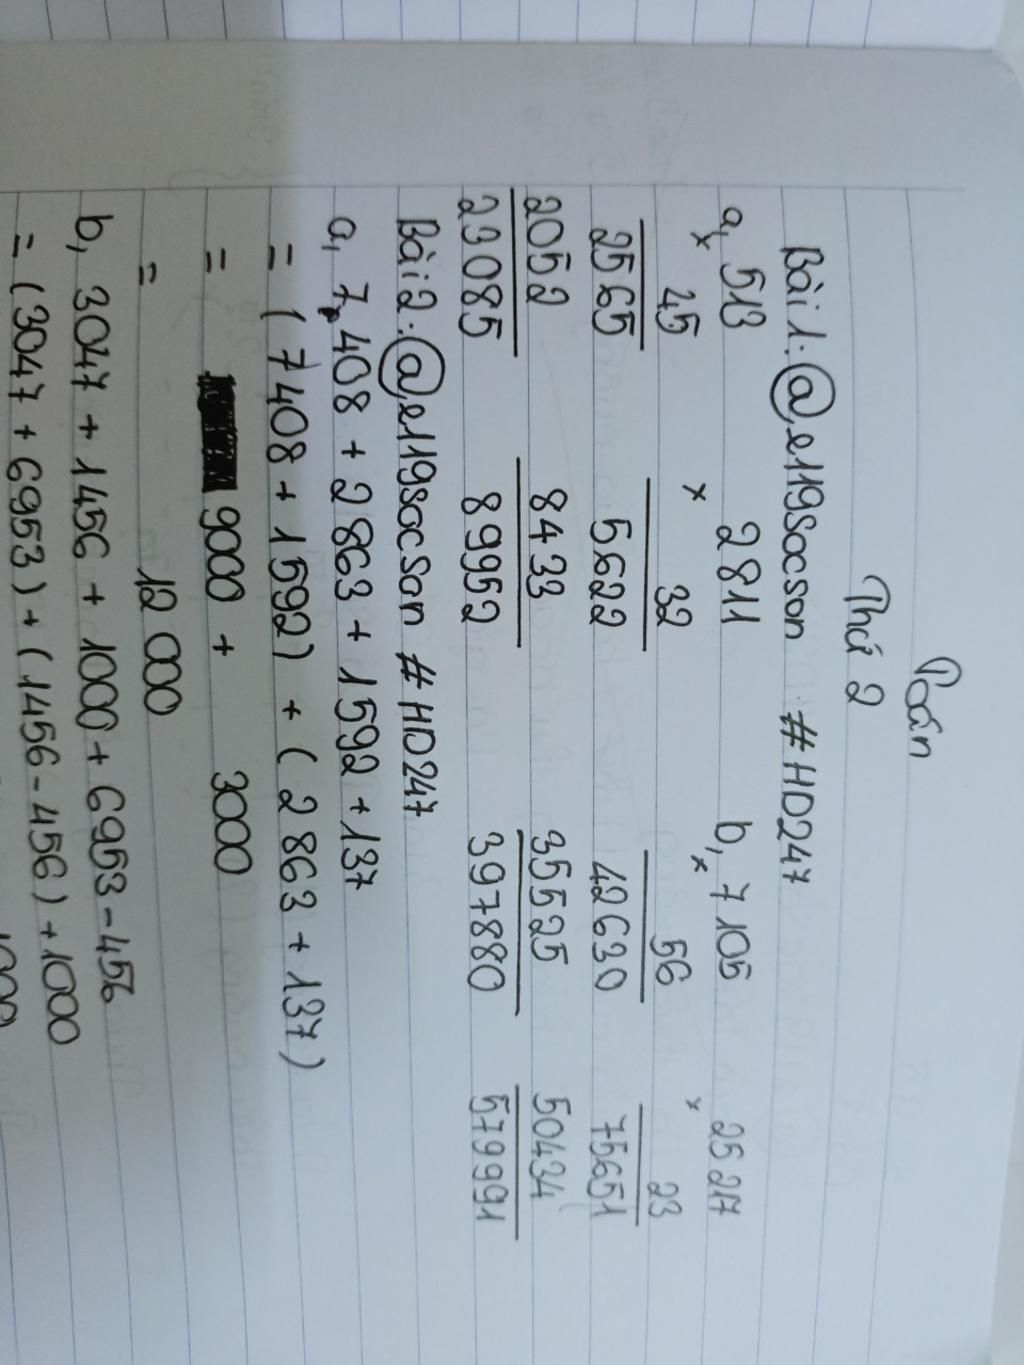 Toán
Thứ 2
Bài 1: @,e119socson #HD247
a, 513 2811 b, 7105 25217
x 45 x 32 x 56 x 23
2565 5622 42630 75651
2052 8433 35525 50434
23085 89952 397880 579991
Bài 2: @,e119socson #HD247
a, 7408 + 2863 + 1592 + 137
= (7408 + 1592) + (2863 + 137)
= 9000 + 3000
= 12 000
b, 3047 + 1456 + 1000 + 6953 - 456
= (3047 + 6953) + (1456 - 456) + 1000